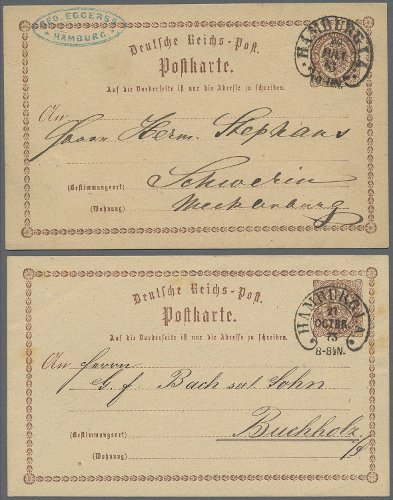 GEO. EGGERS
HAMBURG.
HAMBURG I.A.
73
Deutsche Reichs-Post.
Postkarte.
Auf die Vorderseite ist nur die Adresse zu schreiben.
An
Herrn Herm. Stephans
(Bestimmungsort) Schwerin
(Wohnung) Mecklenburg
Deutsche Reichs-Post.
Postkarte.
HAMBURG I.A.
21
OCTBR.
73
8-8½N.
Auf die Vorderseite ist nur die Adresse zu schreiben.
An Herrn
G. f. Bach sel. Sohn
(Bestimmungsort) Buchholz
(Wohnung)